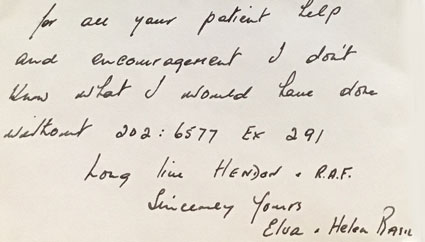 for all your patient help
and encouragement I don't
know what I would have done
without 202:6577 Ex 291
Long live HENDON . R.A.F.
Sincerely Yours
Elva . Helen